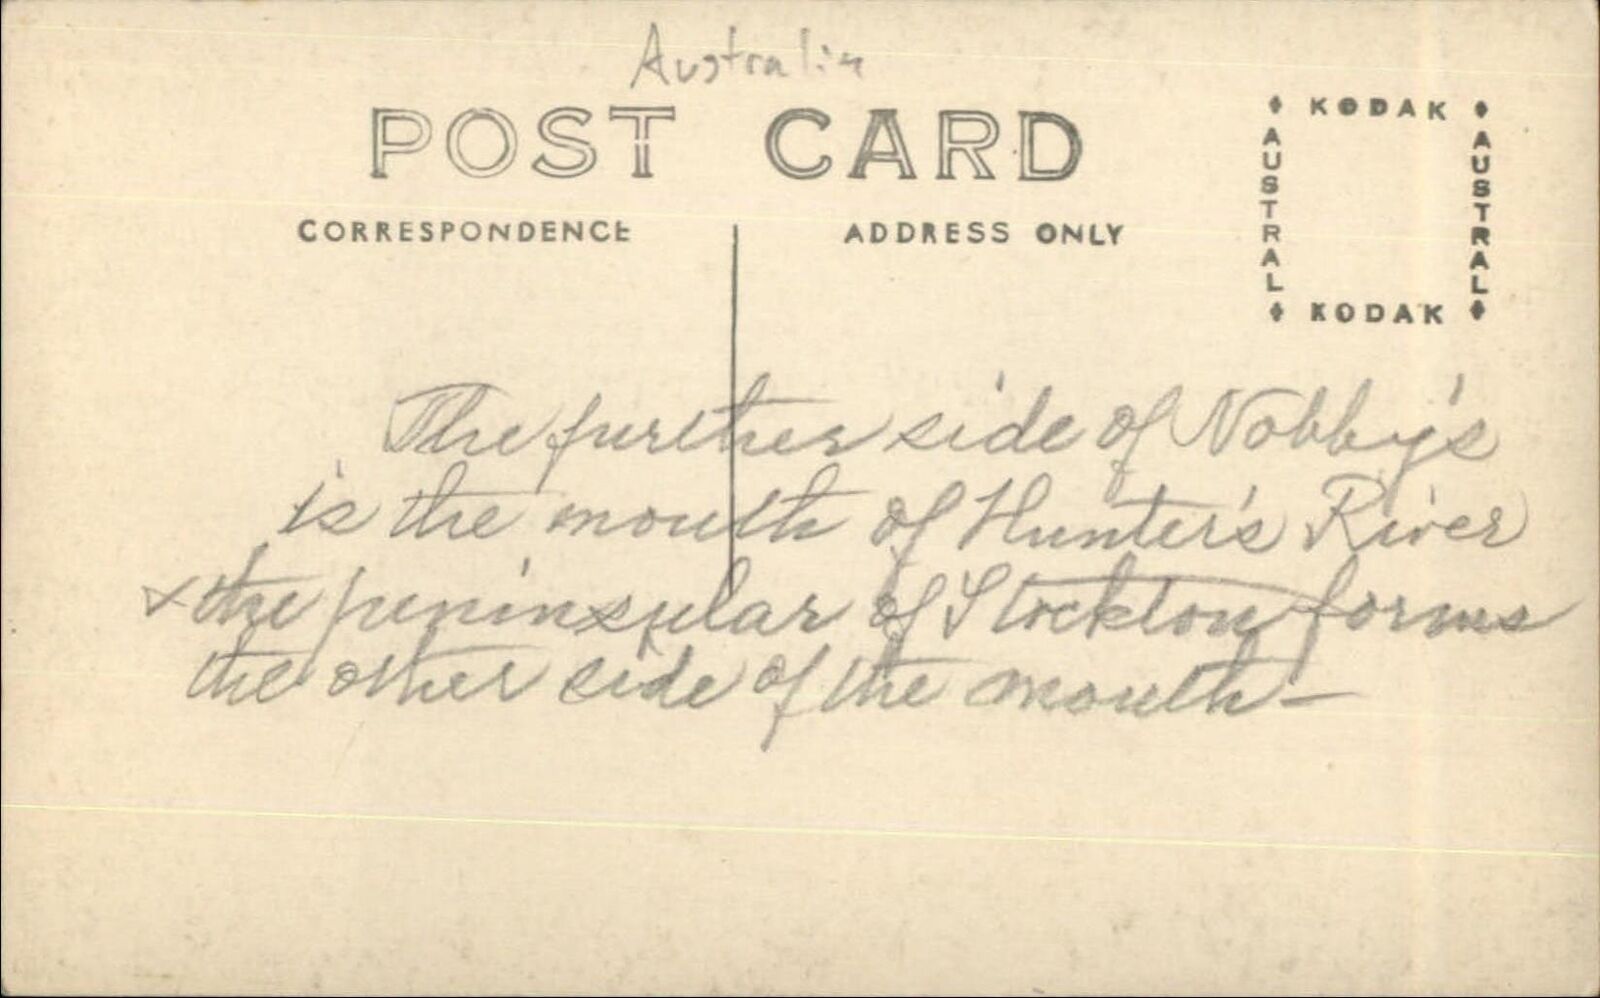 Australia
POST CARD
CORRESPONDENCE
ADDRESS ONLY
KODAK
AUSTRAL
AUSTRAL
KODAK
The further side of Nobby's
is the mouth of Hunter's River
& the peninsular of Stockton forms
the other side of the mouth –